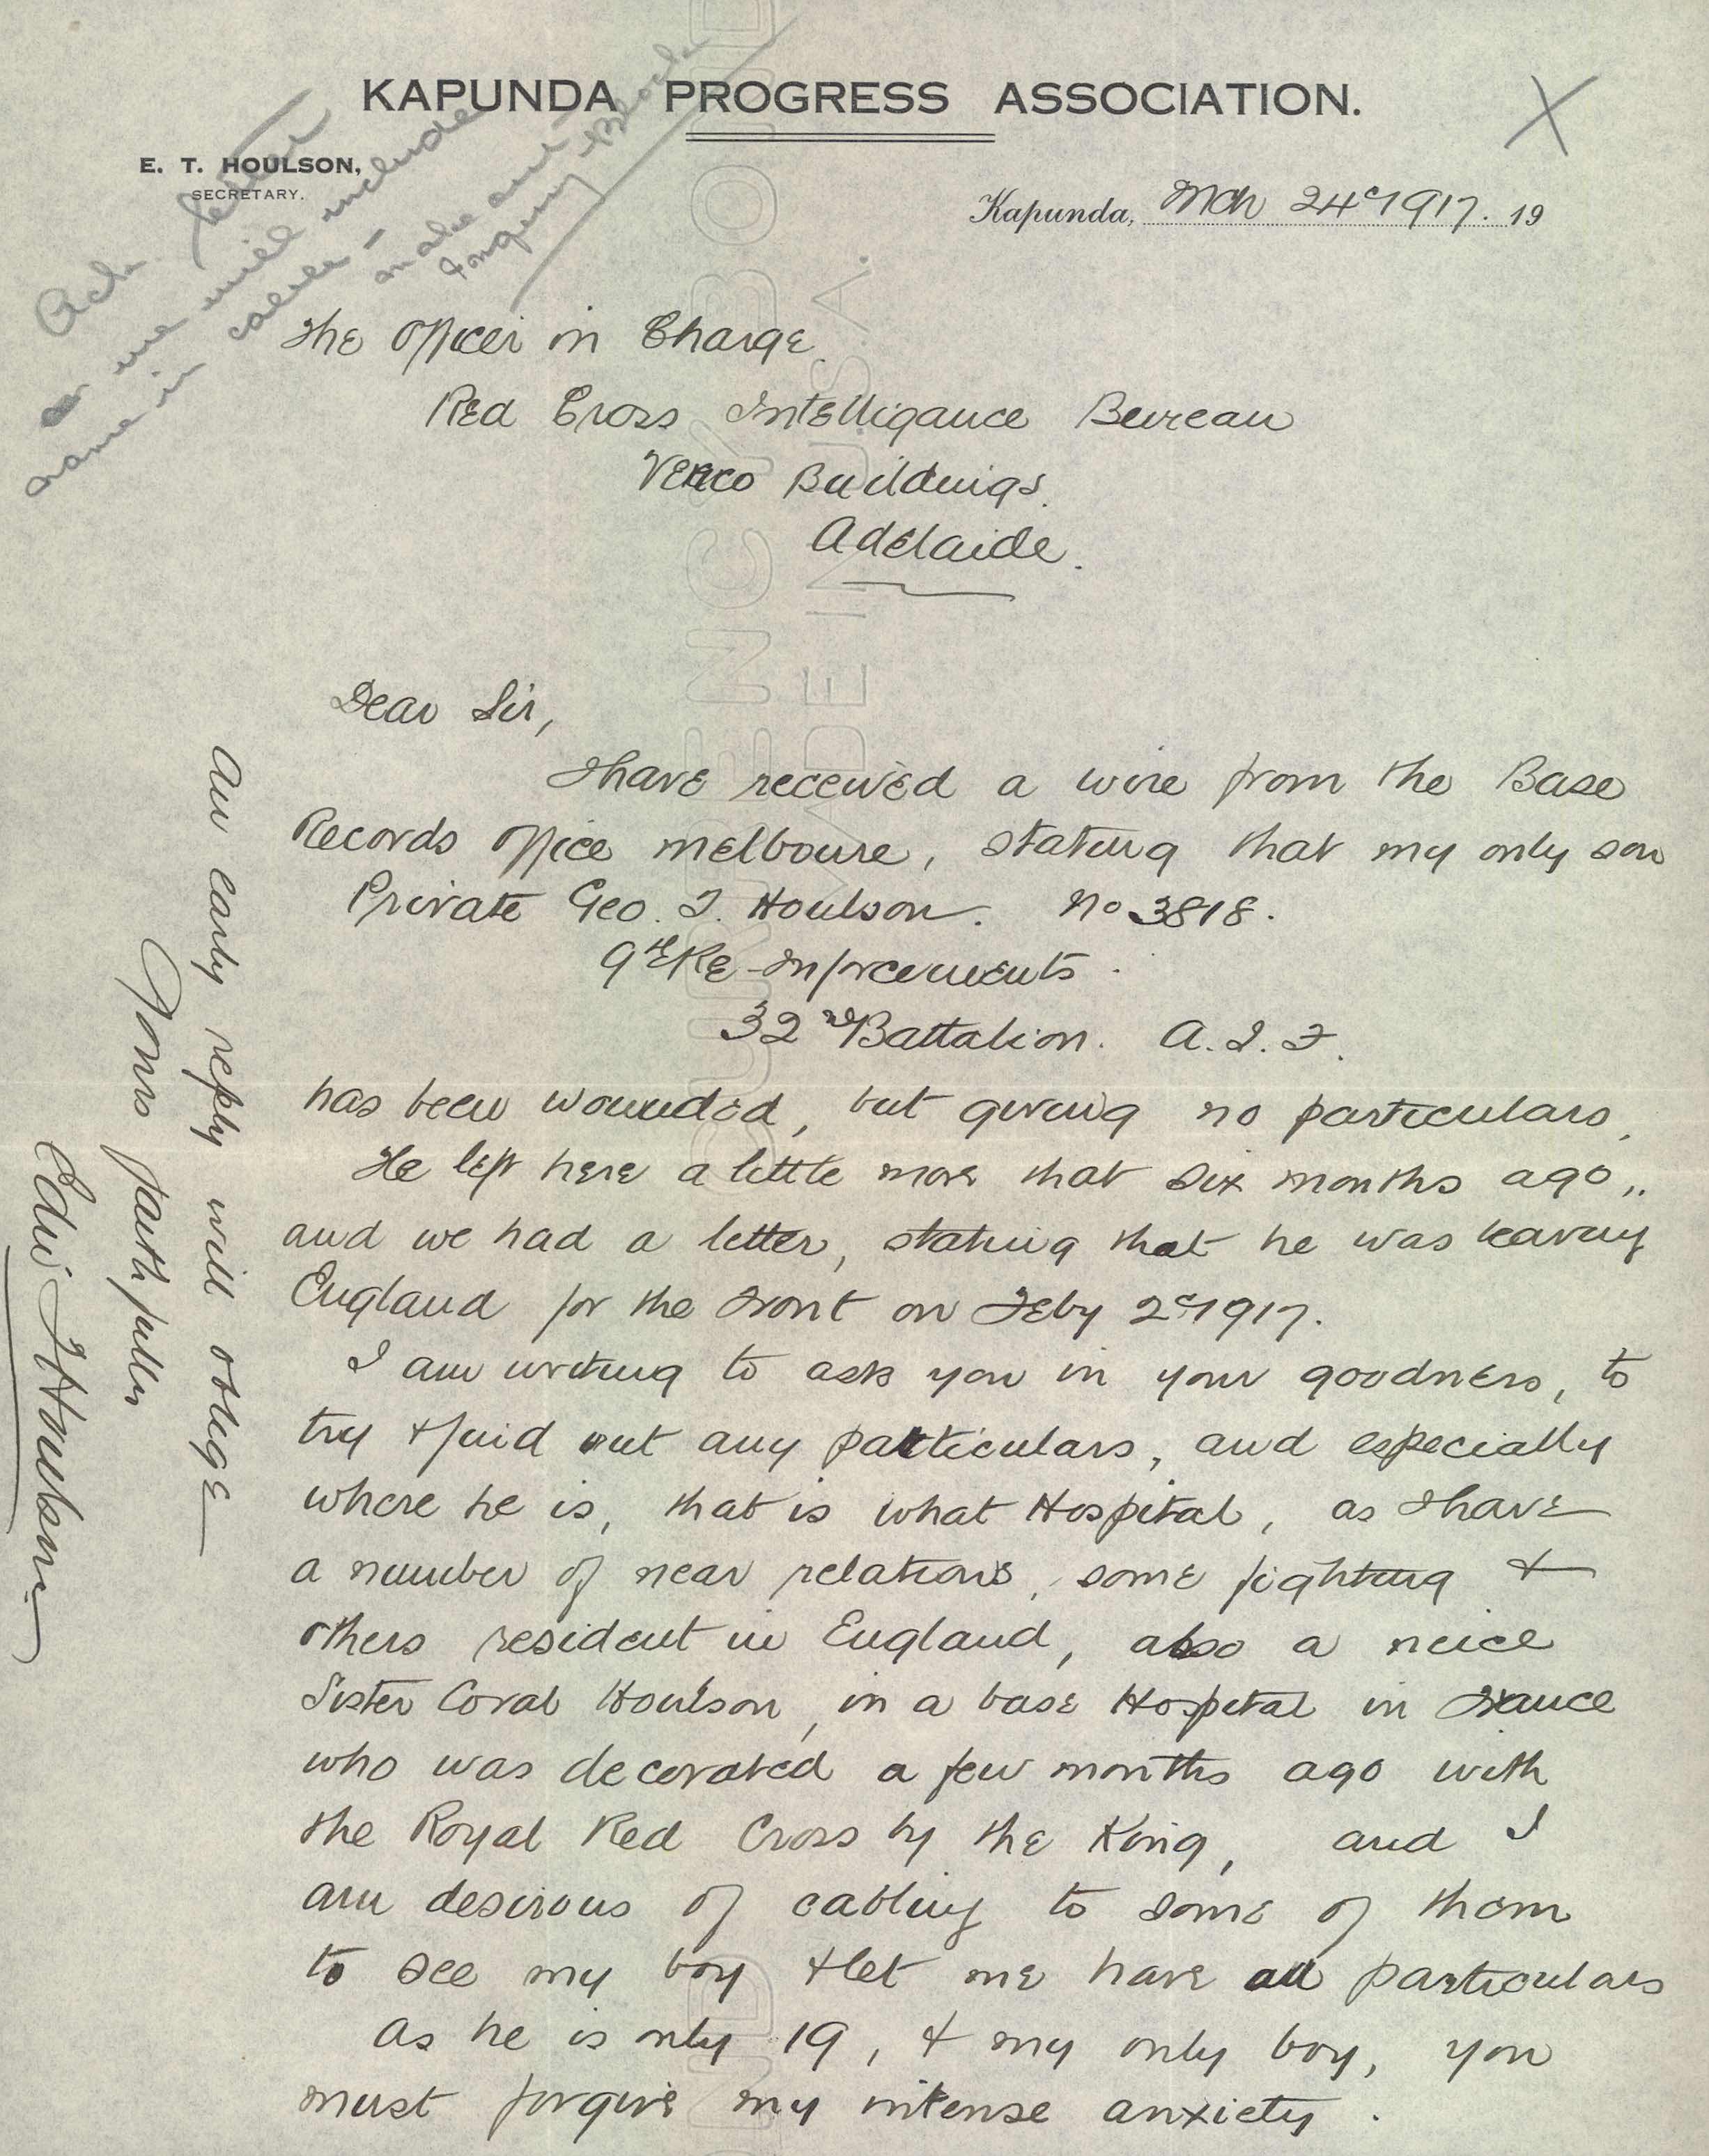 KAPUNDA PROGRESS ASSOCIATION.
E. T. HOULSON,
SECRETARY.
Kapunda, Mch 24th 1917. 19
Ack letter
we will include
name in cable -
make out
Enquiry
The Officer in Charge
Red Cross Intelligance Bureau
Verco Buildings.
Adelaide.
Dear Sir,
I have received a wire from the Base
Records Office Melboure, stating that my only son
Private Geo. T. Houlson. No 3818.
9th Re-Inforcements.
32nd Battalion. A. I. F.
has been wounded, but giving no particulars,
He left here a little more that six months ago,,
and we had a letter, stating that he was leaving
England for the Front on Feby 2nd 1917.
I am writing to ask you in your goodness, to
try & find out any particulars, and especially
where he is, that is what Hospital, as I have
a number of near relations, some fighting &
others resident in England, also a neice
Sister Coral Houlson, in a base Hospital in France
who was decorated a few months ago with
the Royal Red Cross by the King, and I
am desirous of cabling to some of them
to see my boy & let me have all particulars
as he is only 19, & my only boy, you
must forgive my intense anxiety.
An early reply will oblige
Yours faithfully
Edw T Houlson
MADE IN U.S.A.